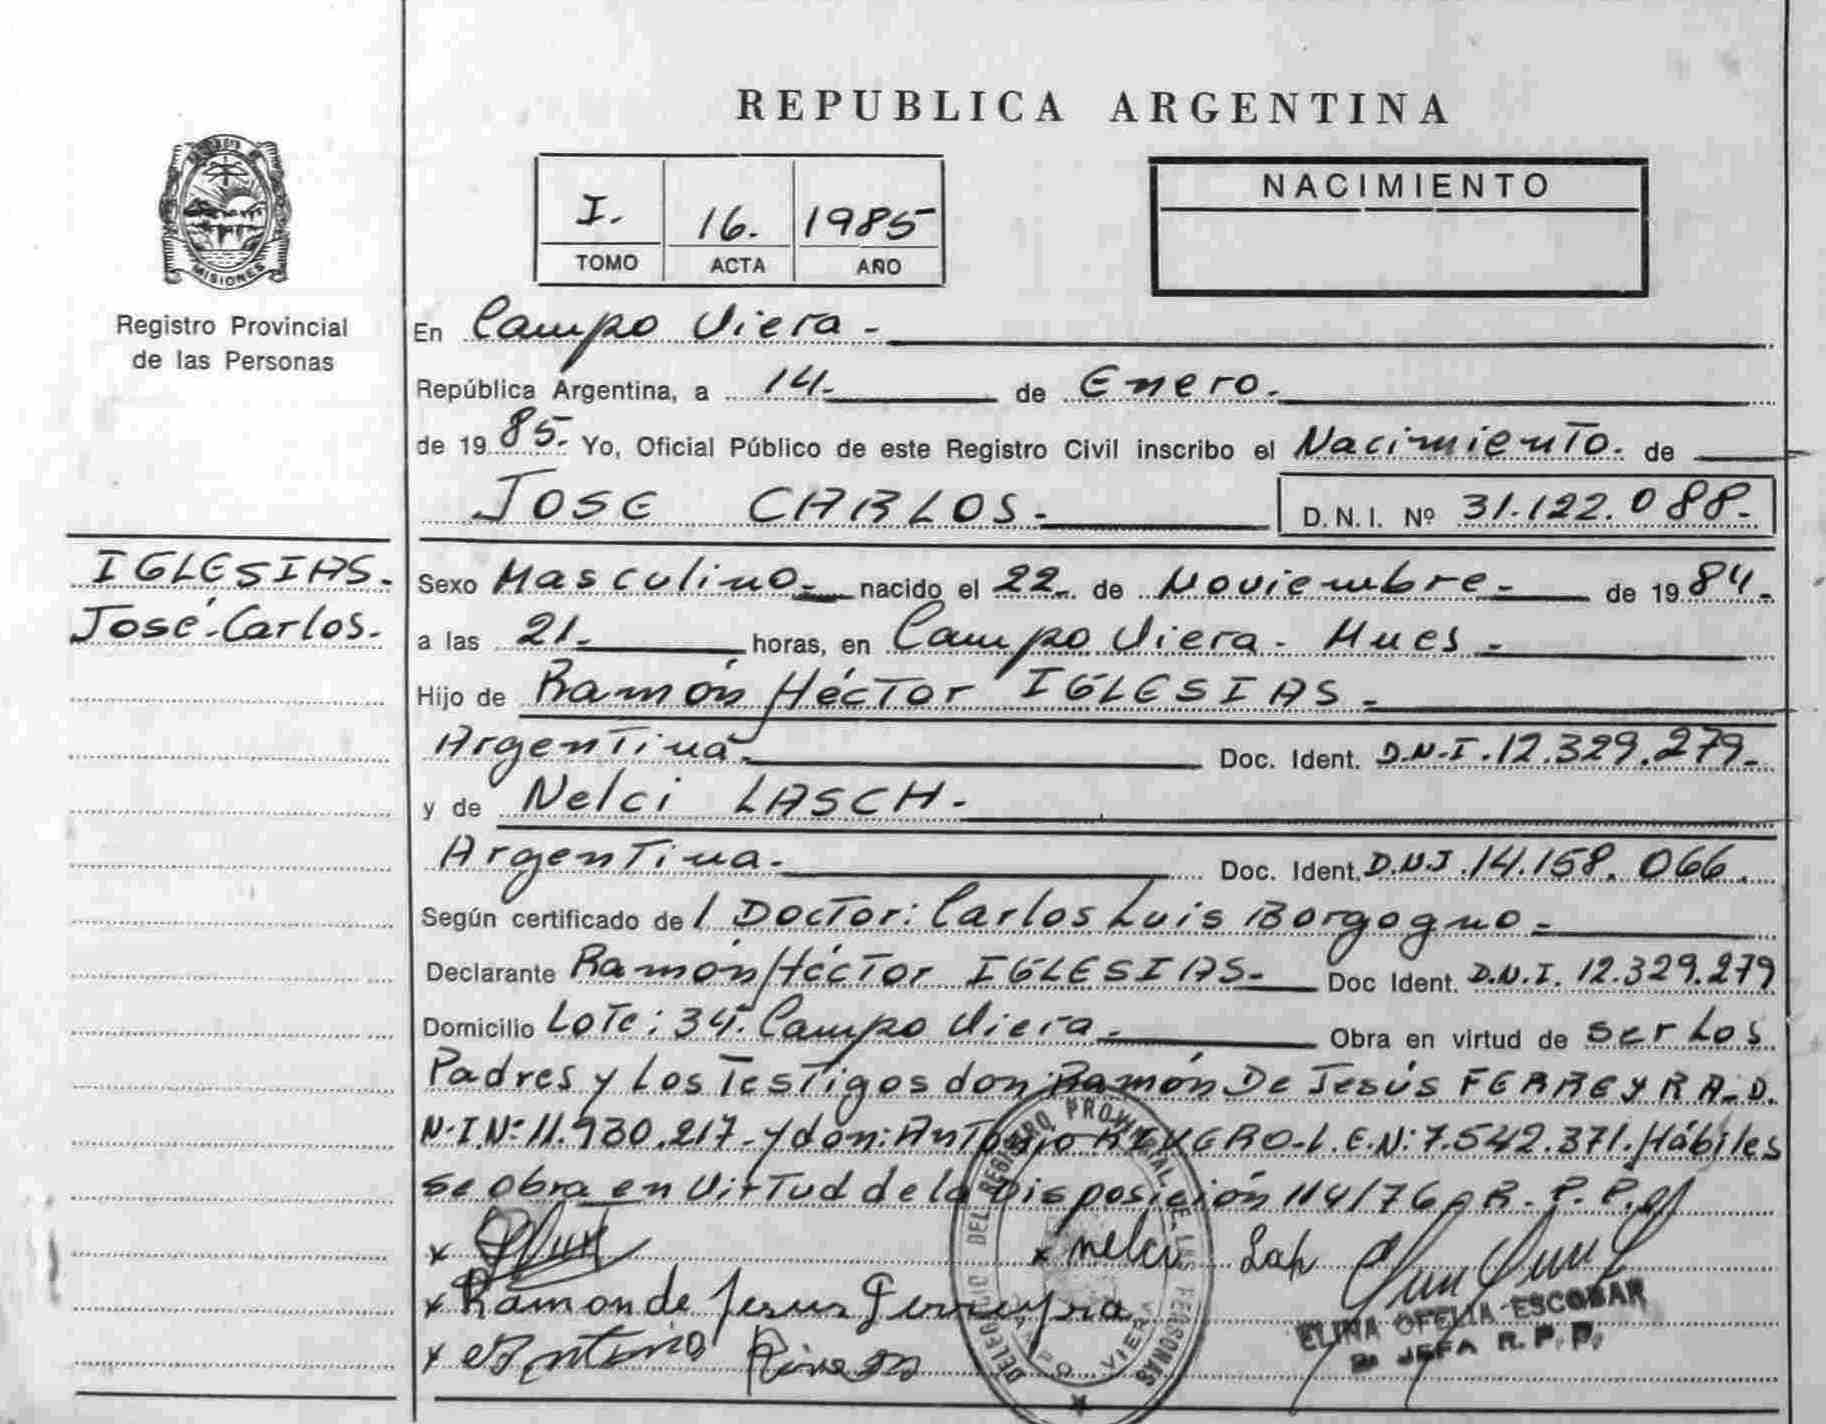 REPUBLICA ARGENTINA
MISIONES
Registro Provincial
de las Personas
I. 16. 1985
TOMO ACTA AÑO
NACIMIENTO
En Campo Viera.-
República Argentina, a 14.- de Enero.-
de 1985.- Yo, Oficial Público de este Registro Civil inscribo el Nacimiento. de
JOSE CARLOS.- D.N.I. Nº 31.122.088.-
IGLESIAS.-
José-Carlos.-
Sexo Masculino.- nacido el 22.. de Noviembre.- de 1984.-
a las 21.- horas, en Campo Viera.-
Hijo de Ramón Héctor IGLESIAS.-
Argentina.- Doc. Ident. D.N.I. 12.329.279.-
y de Nelci LASCH.-
Argentina.- Doc. Ident. D.N.I. 14.158.066.
Según certificado de l Doctor: Carlos Luis Borgogno.-
Declarante Ramón Héctor IGLESIAS.- Doc Ident. D.N.I. 12.329.279
Domicilio Lote: 34. Campo Viera.- Obra en virtud de ser Los
Padres y Los Testigos don: Ramón De Jesús FERREYRA-D.
N.I.Nº: 11.930.217.-y don: Antonio RIVERO-L.E.N: 7.542.371. Hábiles
se obra en Virtud de la Disposición 114/76 R.P.P.
x x nelci
x Ramon de Jesus Ferreyra
x Antonio Rivero
DELEGACIO DEL REGISTRO PROVINCIAL DE LAS PERSONAS
CAMPO VIERA
ELINA OFELIA ESCOBAR
JEFA R.P.P.